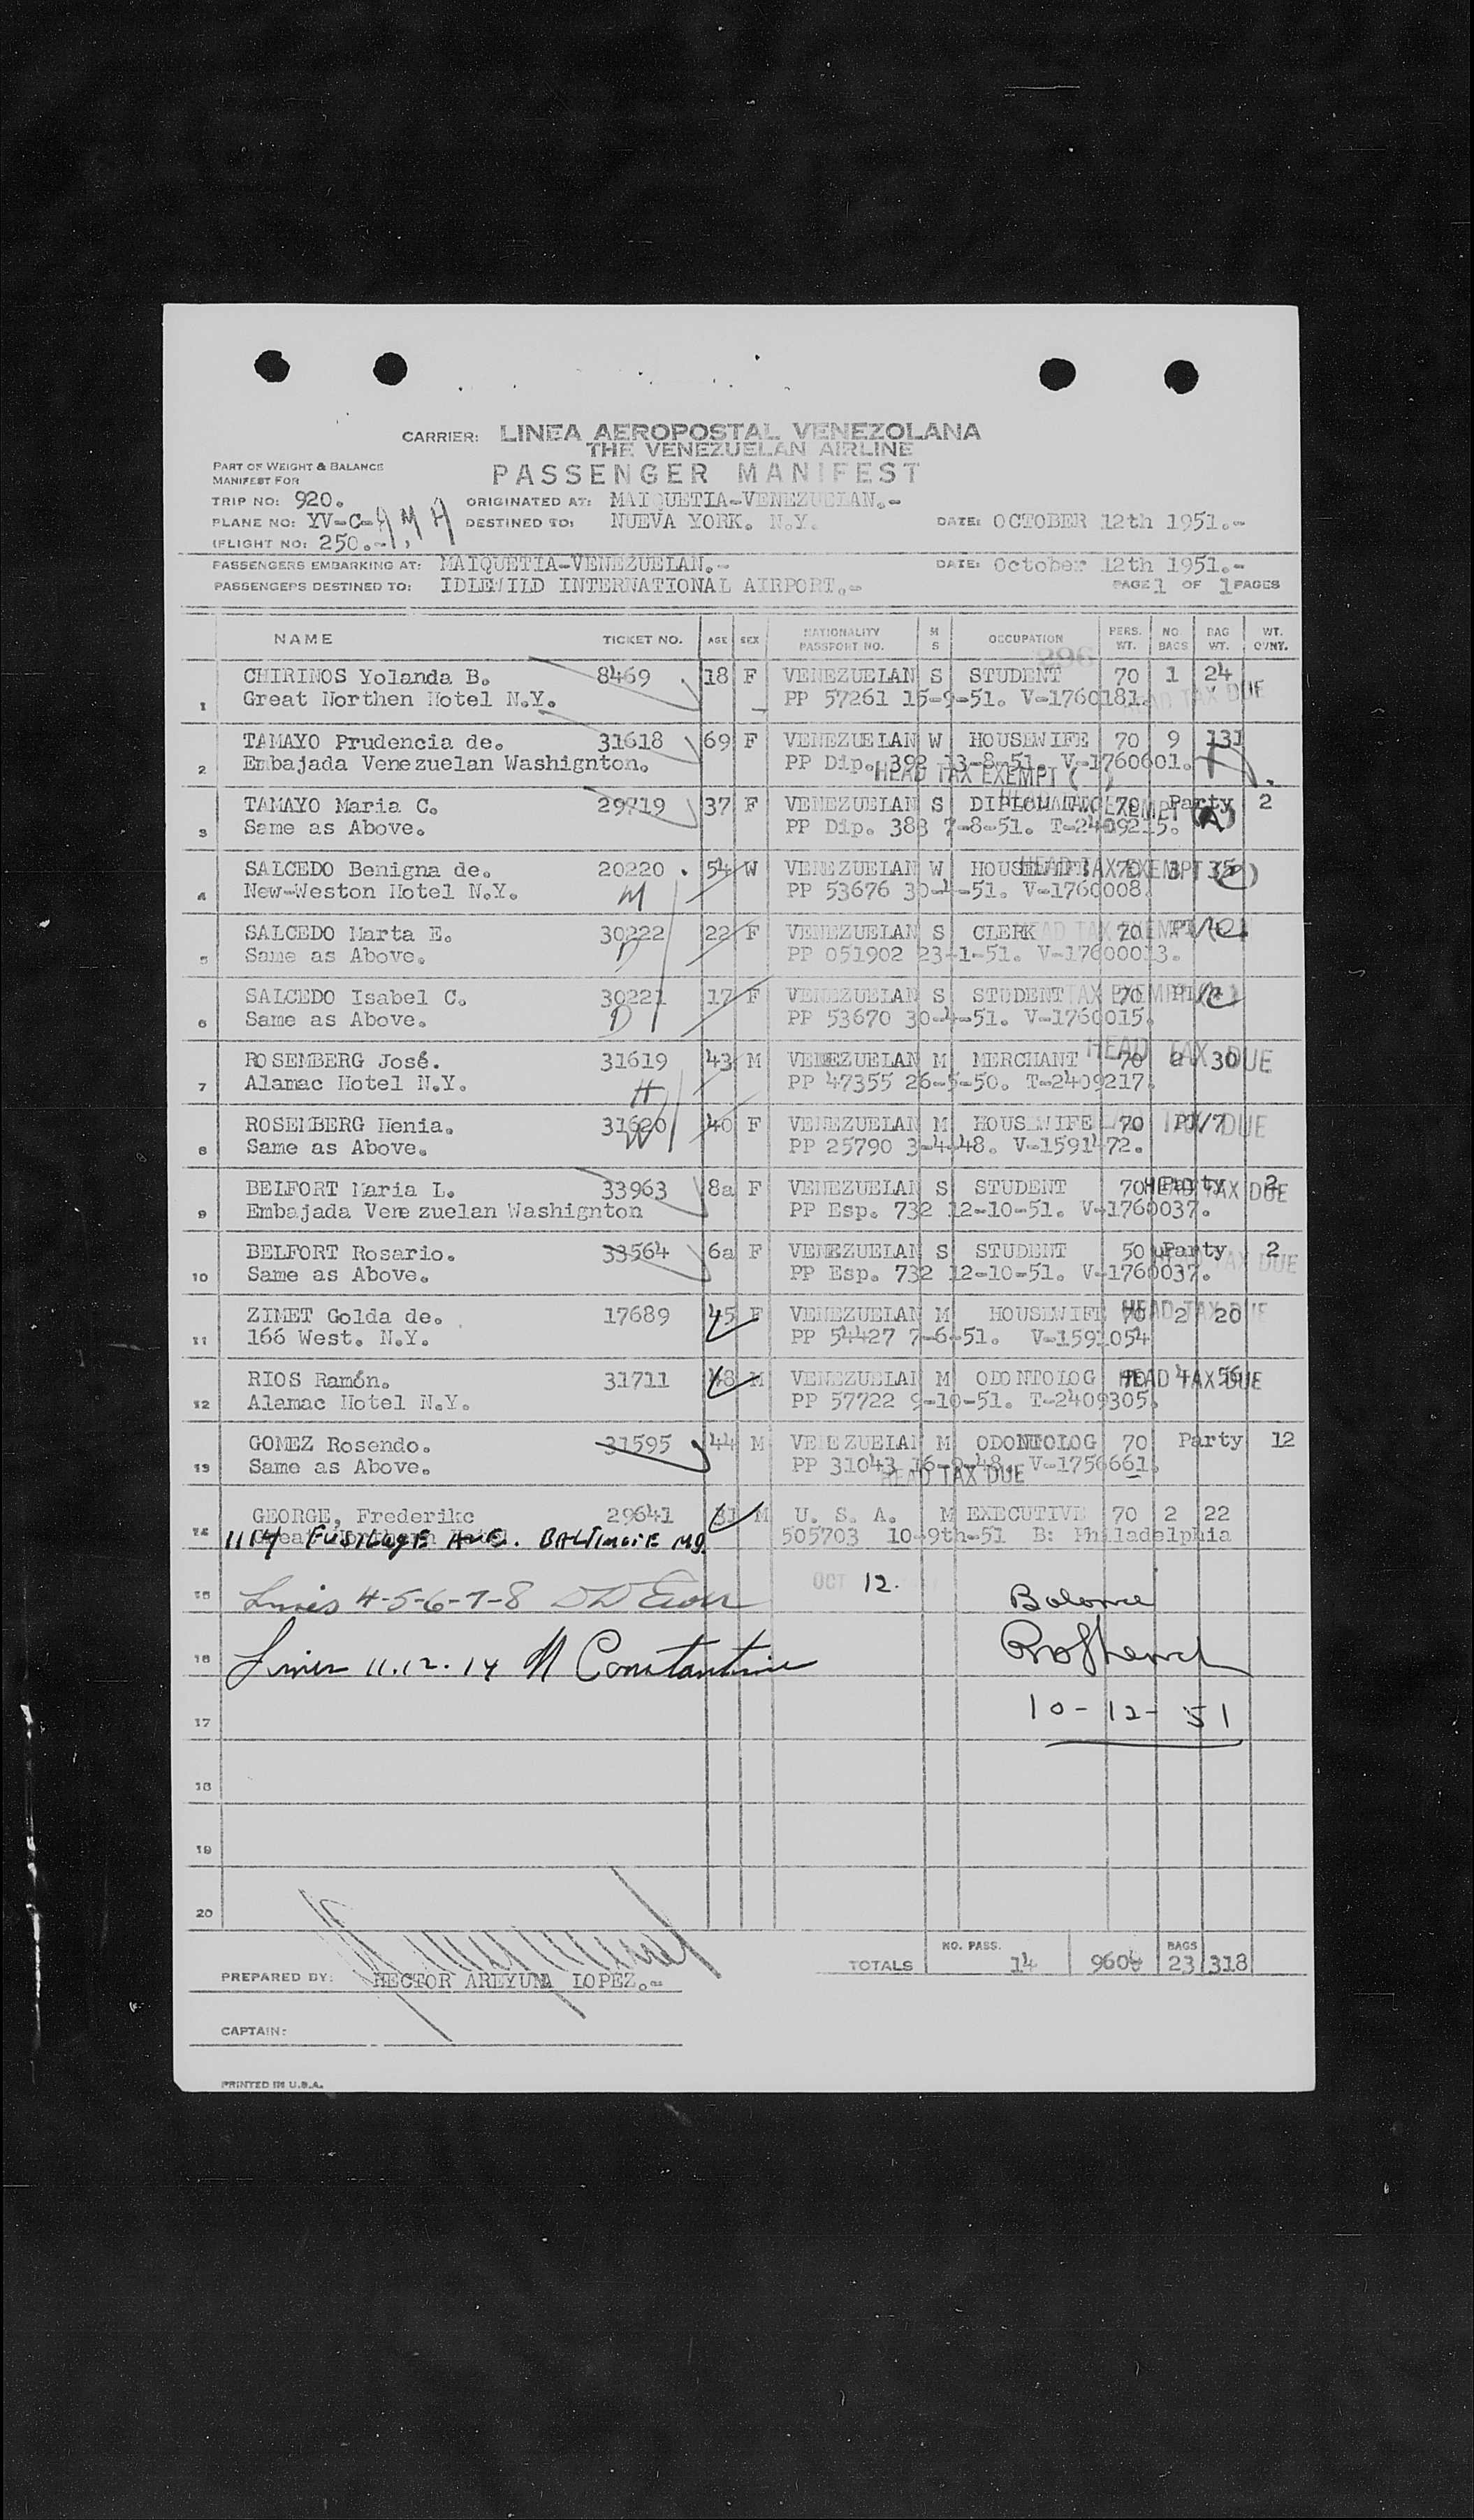 CARRIER: LINEA AEROPOSTAL VENEZOLANA
THE VENEZUELAN AIRLINE
PART OF WEIGHT & BALANCE
MANIFEST FOR
PASSENGER MANIFEST
TRIP NO: 920. ORIGINATED AT: MAIQUETIA-VENEZUELAN.-
PLANE NO: YV-C-AMA DESTINED TO: NUEVA YORK. N.Y. DATE: OCTOBER 12th 1951.-
(FLIGHT NO: 250.-)
PASSENGERS EMBARKING AT: MAIQUETIA-VENEZUELAN.- DATE: October 12th 1951.-
PASSENGERS DESTINED TO: IDLEWILD INTERNATIONAL AIRPORT.- PAGE 1 OF 1 PAGES
NAME TICKET NO. AGE SEX NATIONALITY PASSPORT NO. M S OCCUPATION PERS. WT. NO BAGS BAG WT. WT. OVNT.
CHIRINOS Yolanda B. 8469 18 F VENEZUELAN S STUDENT 70 1 24
1 Great Northen Hotel N.Y. PP 57261 15-9-51. V-1760181. HEAD TAX DUE
TAMAYO Prudencia de. 31618 69 F VENEZUELAN W HOUSEWIFE 70 9 131
2 Embajada Venezuelan Washignton. PP Dip. 392 13-8-51. V-1760601.
HEAD TAX EXEMPT ( )
TAMAYO Maria C. 29719 37 F VENEZUELAN S DIPLOMATIC 70 Party 2
3 Same as Above. PP Dip. 388 7-8-51. T-2409215.
SALCEDO Benigna de. 20220 54 W VENEZUELAN W HOUSEWIFE 70 3 35
4 New-Weston Hotel N.Y. M PP 53676 30-4-51. V-1760008. HEAD TAX EXEMPT
SALCEDO Marta E. 30222 22 F VENEZUELAN S CLERK 70 HEAD TAX EXEMPT
5 Same as Above. D PP 051902 23-1-51. V-17600013.
SALCEDO Isabel C. 30221 17 F VENEZUELAN S STUDENT 70 TAX EXEMPT
6 Same as Above. D PP 53670 30-4-51. V-1760015.
ROSEMBERG José. 31619 43 M VENEZUELAN M MERCHANT 70 2 30 HEAD TAX DUE
7 Alamac Hotel N.Y. H PP 47355 26-5-50. T-2409217.
ROSEMBERG Henia. 31620 40 F VENEZUELAN M HOUSEWIFE 70 TAX DUE
8 Same as Above. W PP 25790 3-4-48. V-1591472.
BELFORT Maria L. 33963 8a F VENEZUELAN S STUDENT 70 Party 2 HEAD TAX DUE
9 Embajada Venezuelan Washignton PP Esp. 732 12-10-51. V-1760037.
BELFORT Rosario. 33564 6a F VENEZUELAN S STUDENT 50 Party 2
10 Same as Above. PP Esp. 732 12-10-51. V-1760037. TAX DUE
ZIMET Golda de. 17689 45 F VENEZUELAN M HOUSEWIFE 70 2 20 HEAD TAX DUE
11 166 West. N.Y. PP 54427 7-6-51. V-1591054
RIOS Ramón. 31711 48 M VENEZUELAN M ODONTOLOG 70 4 56 HEAD TAX DUE
12 Alamac Hotel N.Y. PP 57722 9-10-51. T-2409305.
GOMEZ Rosendo. 31595 44 M VENEZUELAN M ODONTOLOG 70 Party 12
13 Same as Above. PP 31043 16-9-48. V-1756661.
HEAD TAX DUE
GEORGE, Frederikc 29641 31 M U. S. A. M EXECUTIVE 70 2 22
14 1114 FUSILAGE AVE. BALTIMORE MD. 505703 10-9th-51 B: Philadelphia
OCT 12.
15 Lines 4-5-6-7-8 Balance
16 Lines 11.12.14 M Constantine
17 10-12-51
18
19
20
TOTALS NO. PASS. 14 960 BAGS 23 318
PREPARED BY: HECTOR AREYUNA LOPEZ.-
CAPTAIN:
PRINTED IN U.S.A.